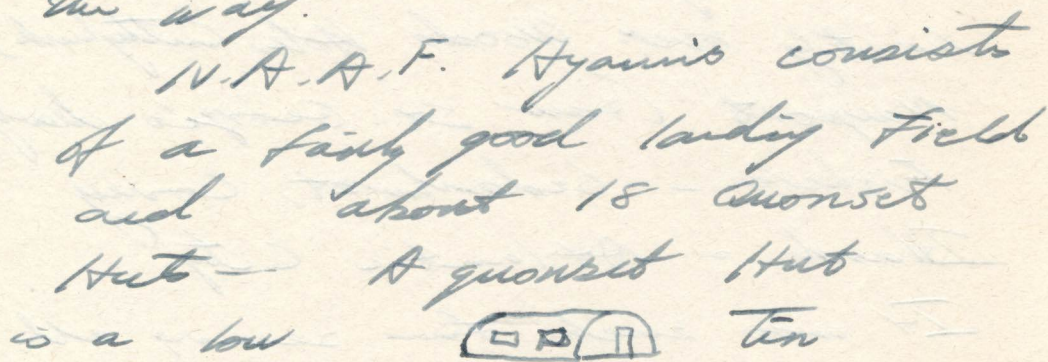 the way.
N.A.A.F. Hyannis consists
of a fairly good landing Field
and about 18 Quonset
Huts — A quonset Hut
is a low Tin